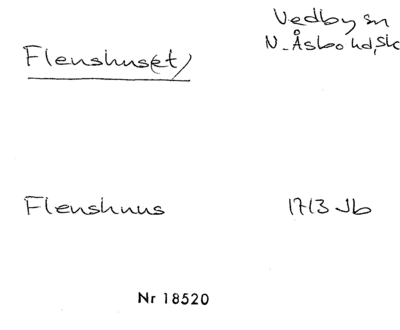 Vedby sn
N. Åsbo hd, Sk
Flenshus(et)
Flenshuus
1713 Jb
Nr 18520